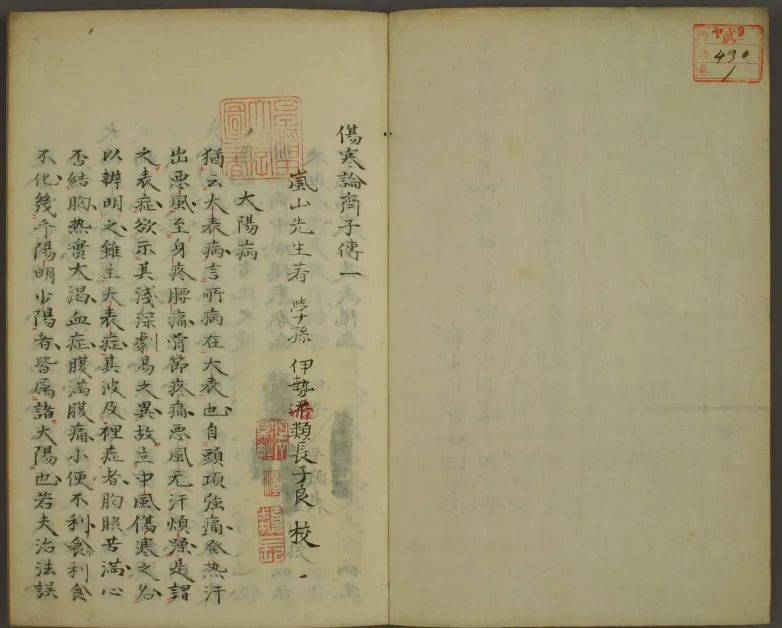 傷寒論齊子傳一
嵐山先生著 孫 伊勢 類長子良 校
大陽病
猶云大表病言所病在大表也自頭項強痛發热汗
出悪風至身疼腰痛骨節疼痛悪風无汗煩躁是謂
之表症欲示其淺深劇易之異故立中風傷寒之名
以辨明之雖主大表症其波及裡症者胸脇苦滿心
否結胸热實大渴血症腹满腹痛小便不利食利食
不化幾乎陽明少陽者皆属諸大陽也若夫治法誤
武
門
卷
430
1